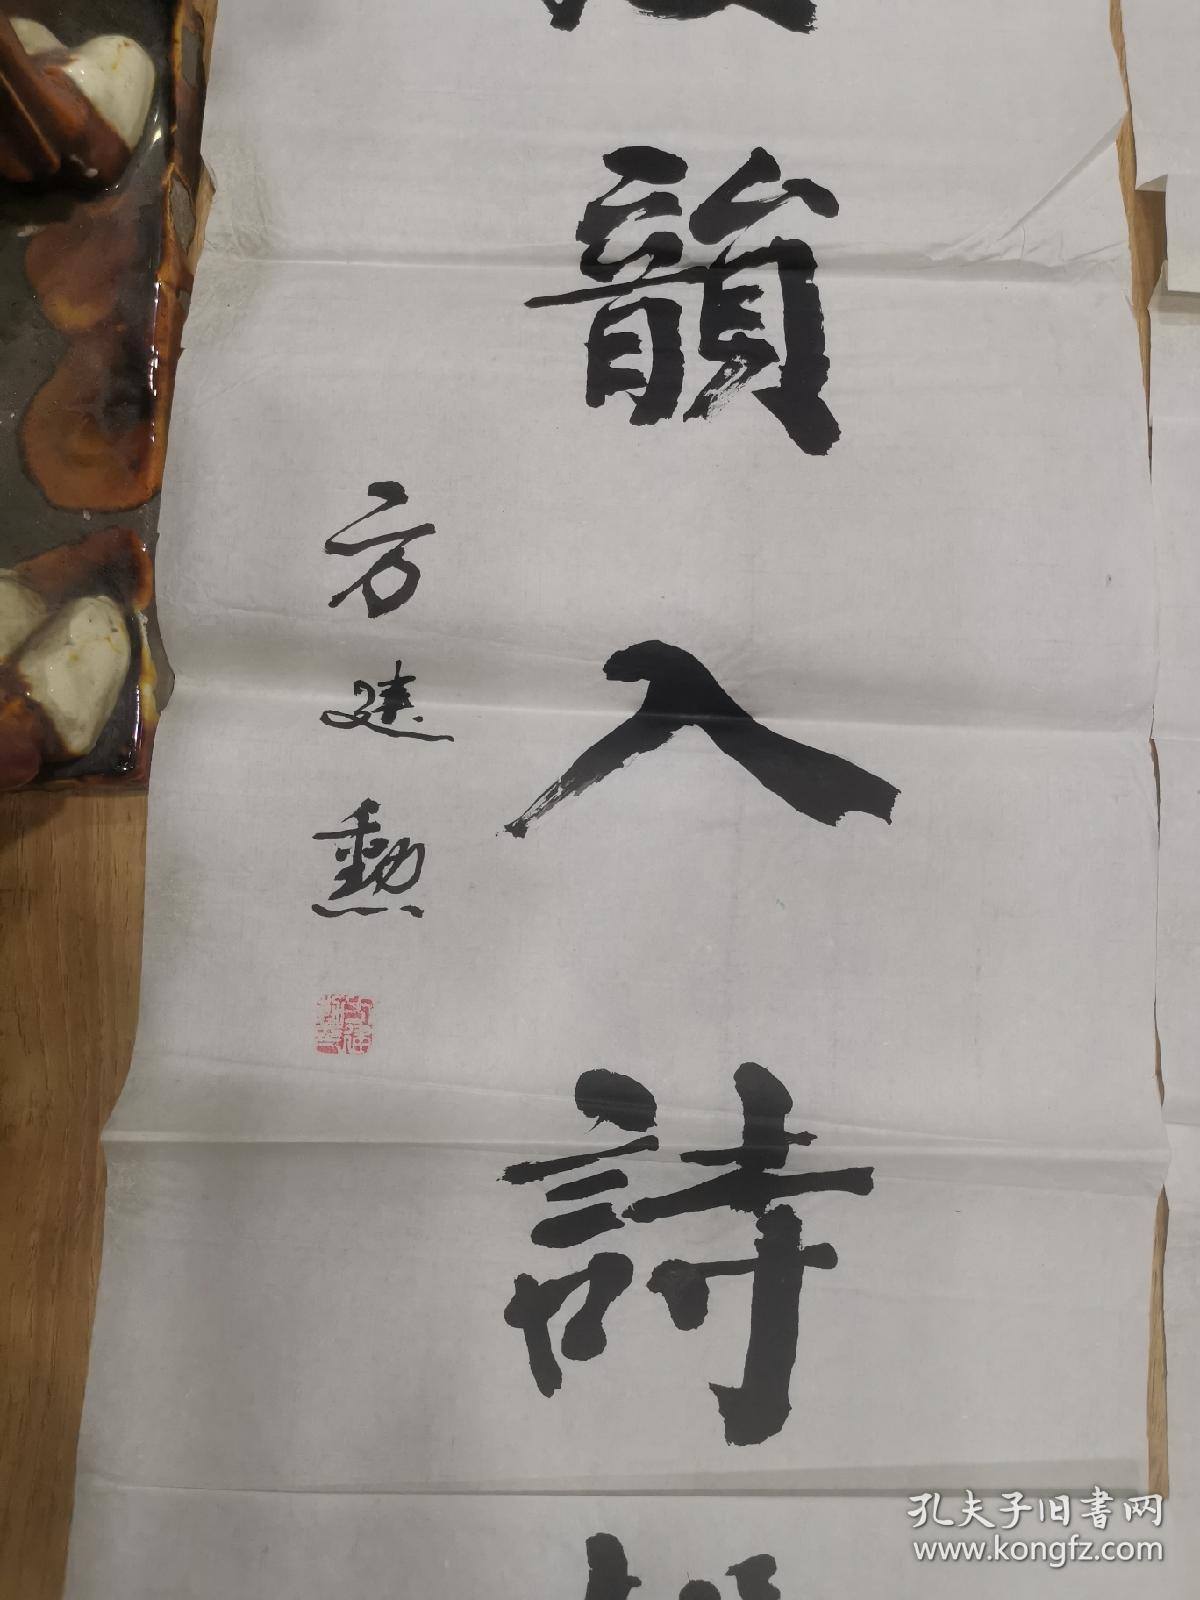 韻入詩
方建勳
孔夫子旧书网
www.kongfz.com